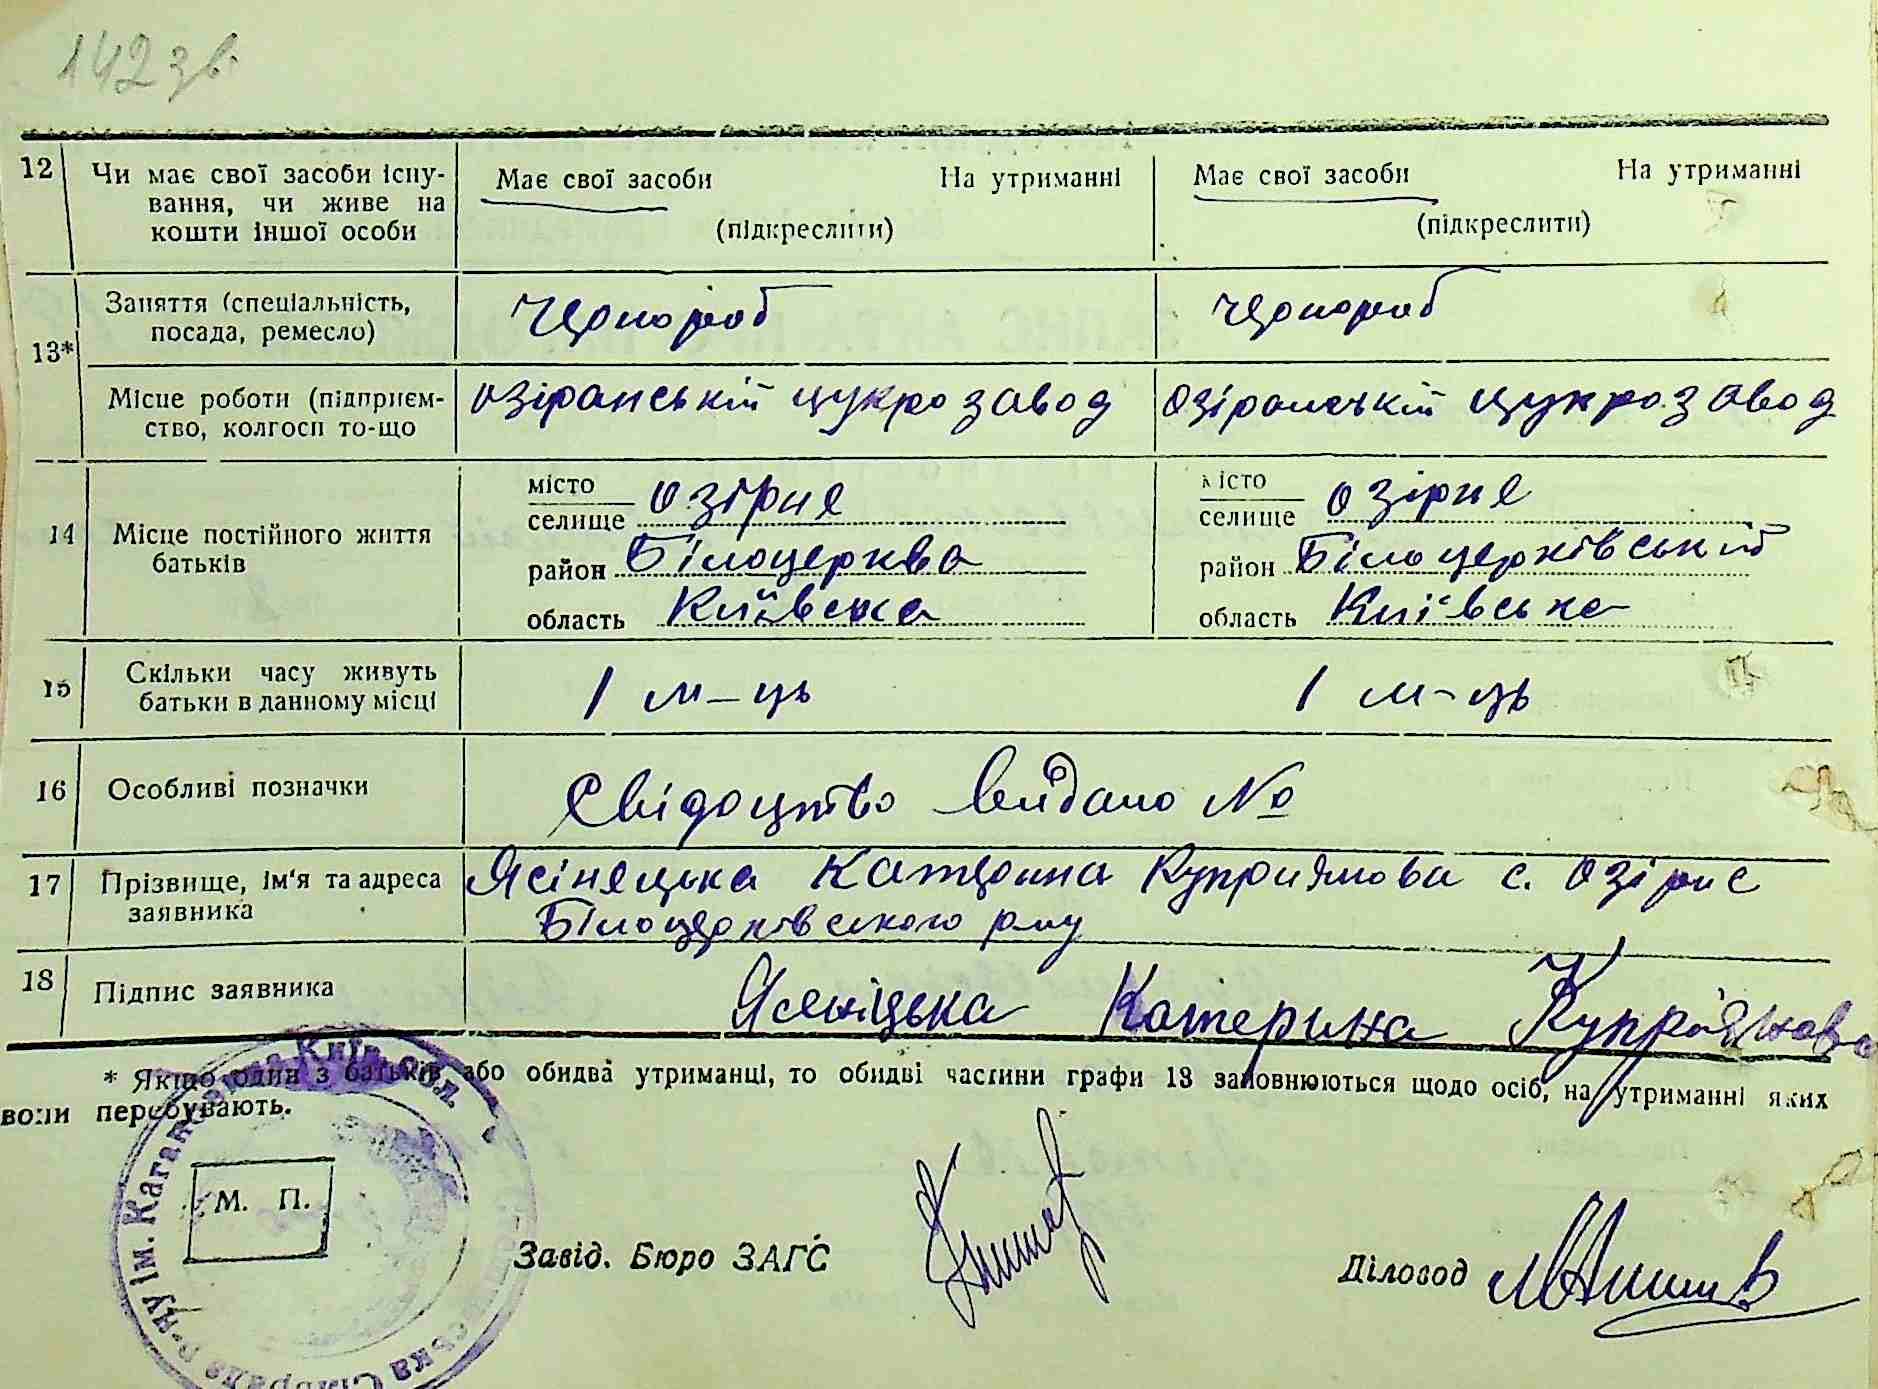 142 зв.
12 Чи має свої засоби існу- Має свої засоби На утриманні Має свої засоби На утриманні
вання, чи живе на
кошти іншої особи (підкреслити) (підкреслити)
13* Заняття (спеціальність, Чернороб Чернороб
посада, ремесло)
Місце роботи (підприєм- Озіранський цукрозавод Озіранський цукрозавод
ство, колгосп то-що
14 Місце постійного життя місто Озірне місто Озірне
батьків селище селище
район Білоцерква район Білоцерківський
область Київська область Київська
15 Скільки часу живуть 1 м-ць 1 м-ць
батьки в данному місці
16 Особливі позначки Свідоцтво видано №
17 Прізвище, ім'я та адреса Ясінецька Катерина Куприянова с. Озірне
заявника Білоцерківського р-ну
18 Підпис заявника Ясеніцька Катерина Купріянова
* Якщо один з батьків або обидва утриманці, то обидві частини графи 13 заповнюються щодо осіб, на утриманні яких
вони перебувають.
М. П.
Завід. Бюро ЗАГС Діловод